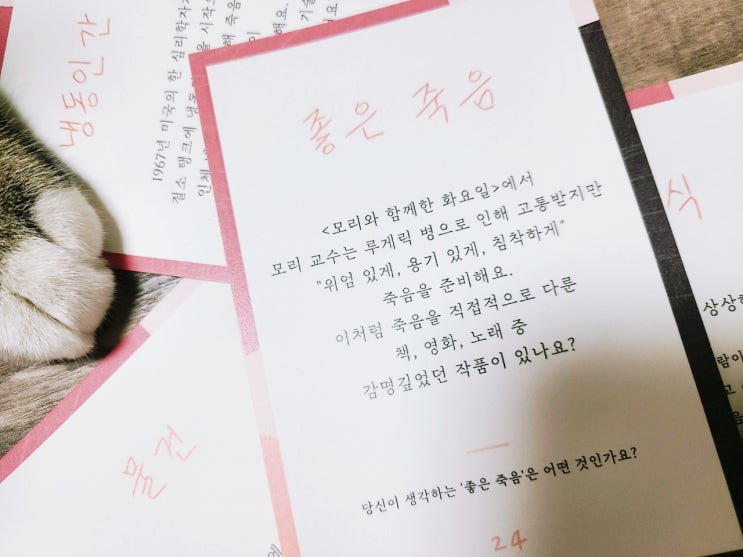 냉동인간
1967년 미국의 한 심리학자가
질소 탱크에 냉동
인체
좋은 죽음
<모리와 함께한 화요일>에서
모리 교수는 루게릭 병으로 인해 고통받지만
"위엄 있게, 용기 있게, 침착하게"
죽음을 준비해요.
이처럼 죽음을 직접적으로 다룬
책, 영화, 노래 중
감명깊었던 작품이 있나요?
당신이 생각하는 '좋은 죽음'은 어떤 것인가요?
24
물건
식